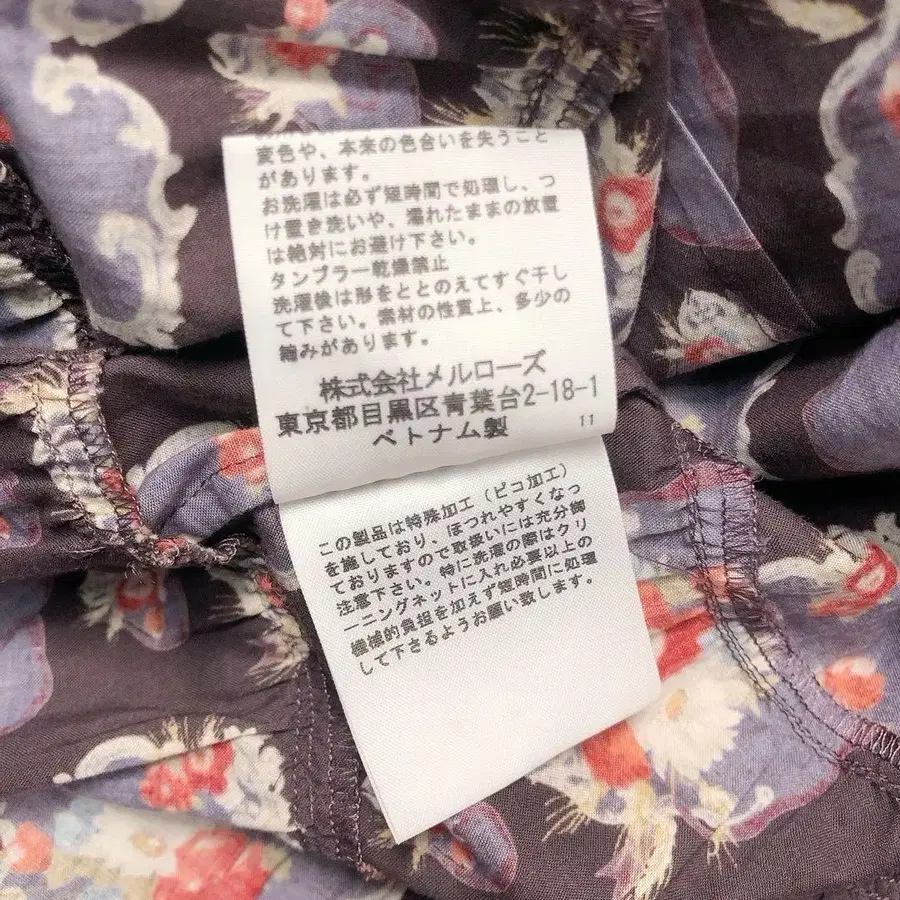 変色や、本来の色合いを失うこと
があります。
お洗濯は必ず短時間で処理し、つ
け置き洗いや、濡れたままの放置
は絶対にお避け下さい。
タンブラー乾燥禁止
洗濯後は形をととのえてすぐ干し
て下さい。素材の性質上、多少の
縮みがあります。
株式会社メルローズ
東京都目黒区青葉台2-18-1
ベトナム製
11
この製品は特殊加工(ピコ加工)
を施しており、ほつれやすくなっ
ておりますので取扱いには充分御
注意下さい。特に洗濯の際はクリ
ーニングネットに入れ必要以上の
機械的負担を加えず短時間に処理
して下さるようお願い致します。